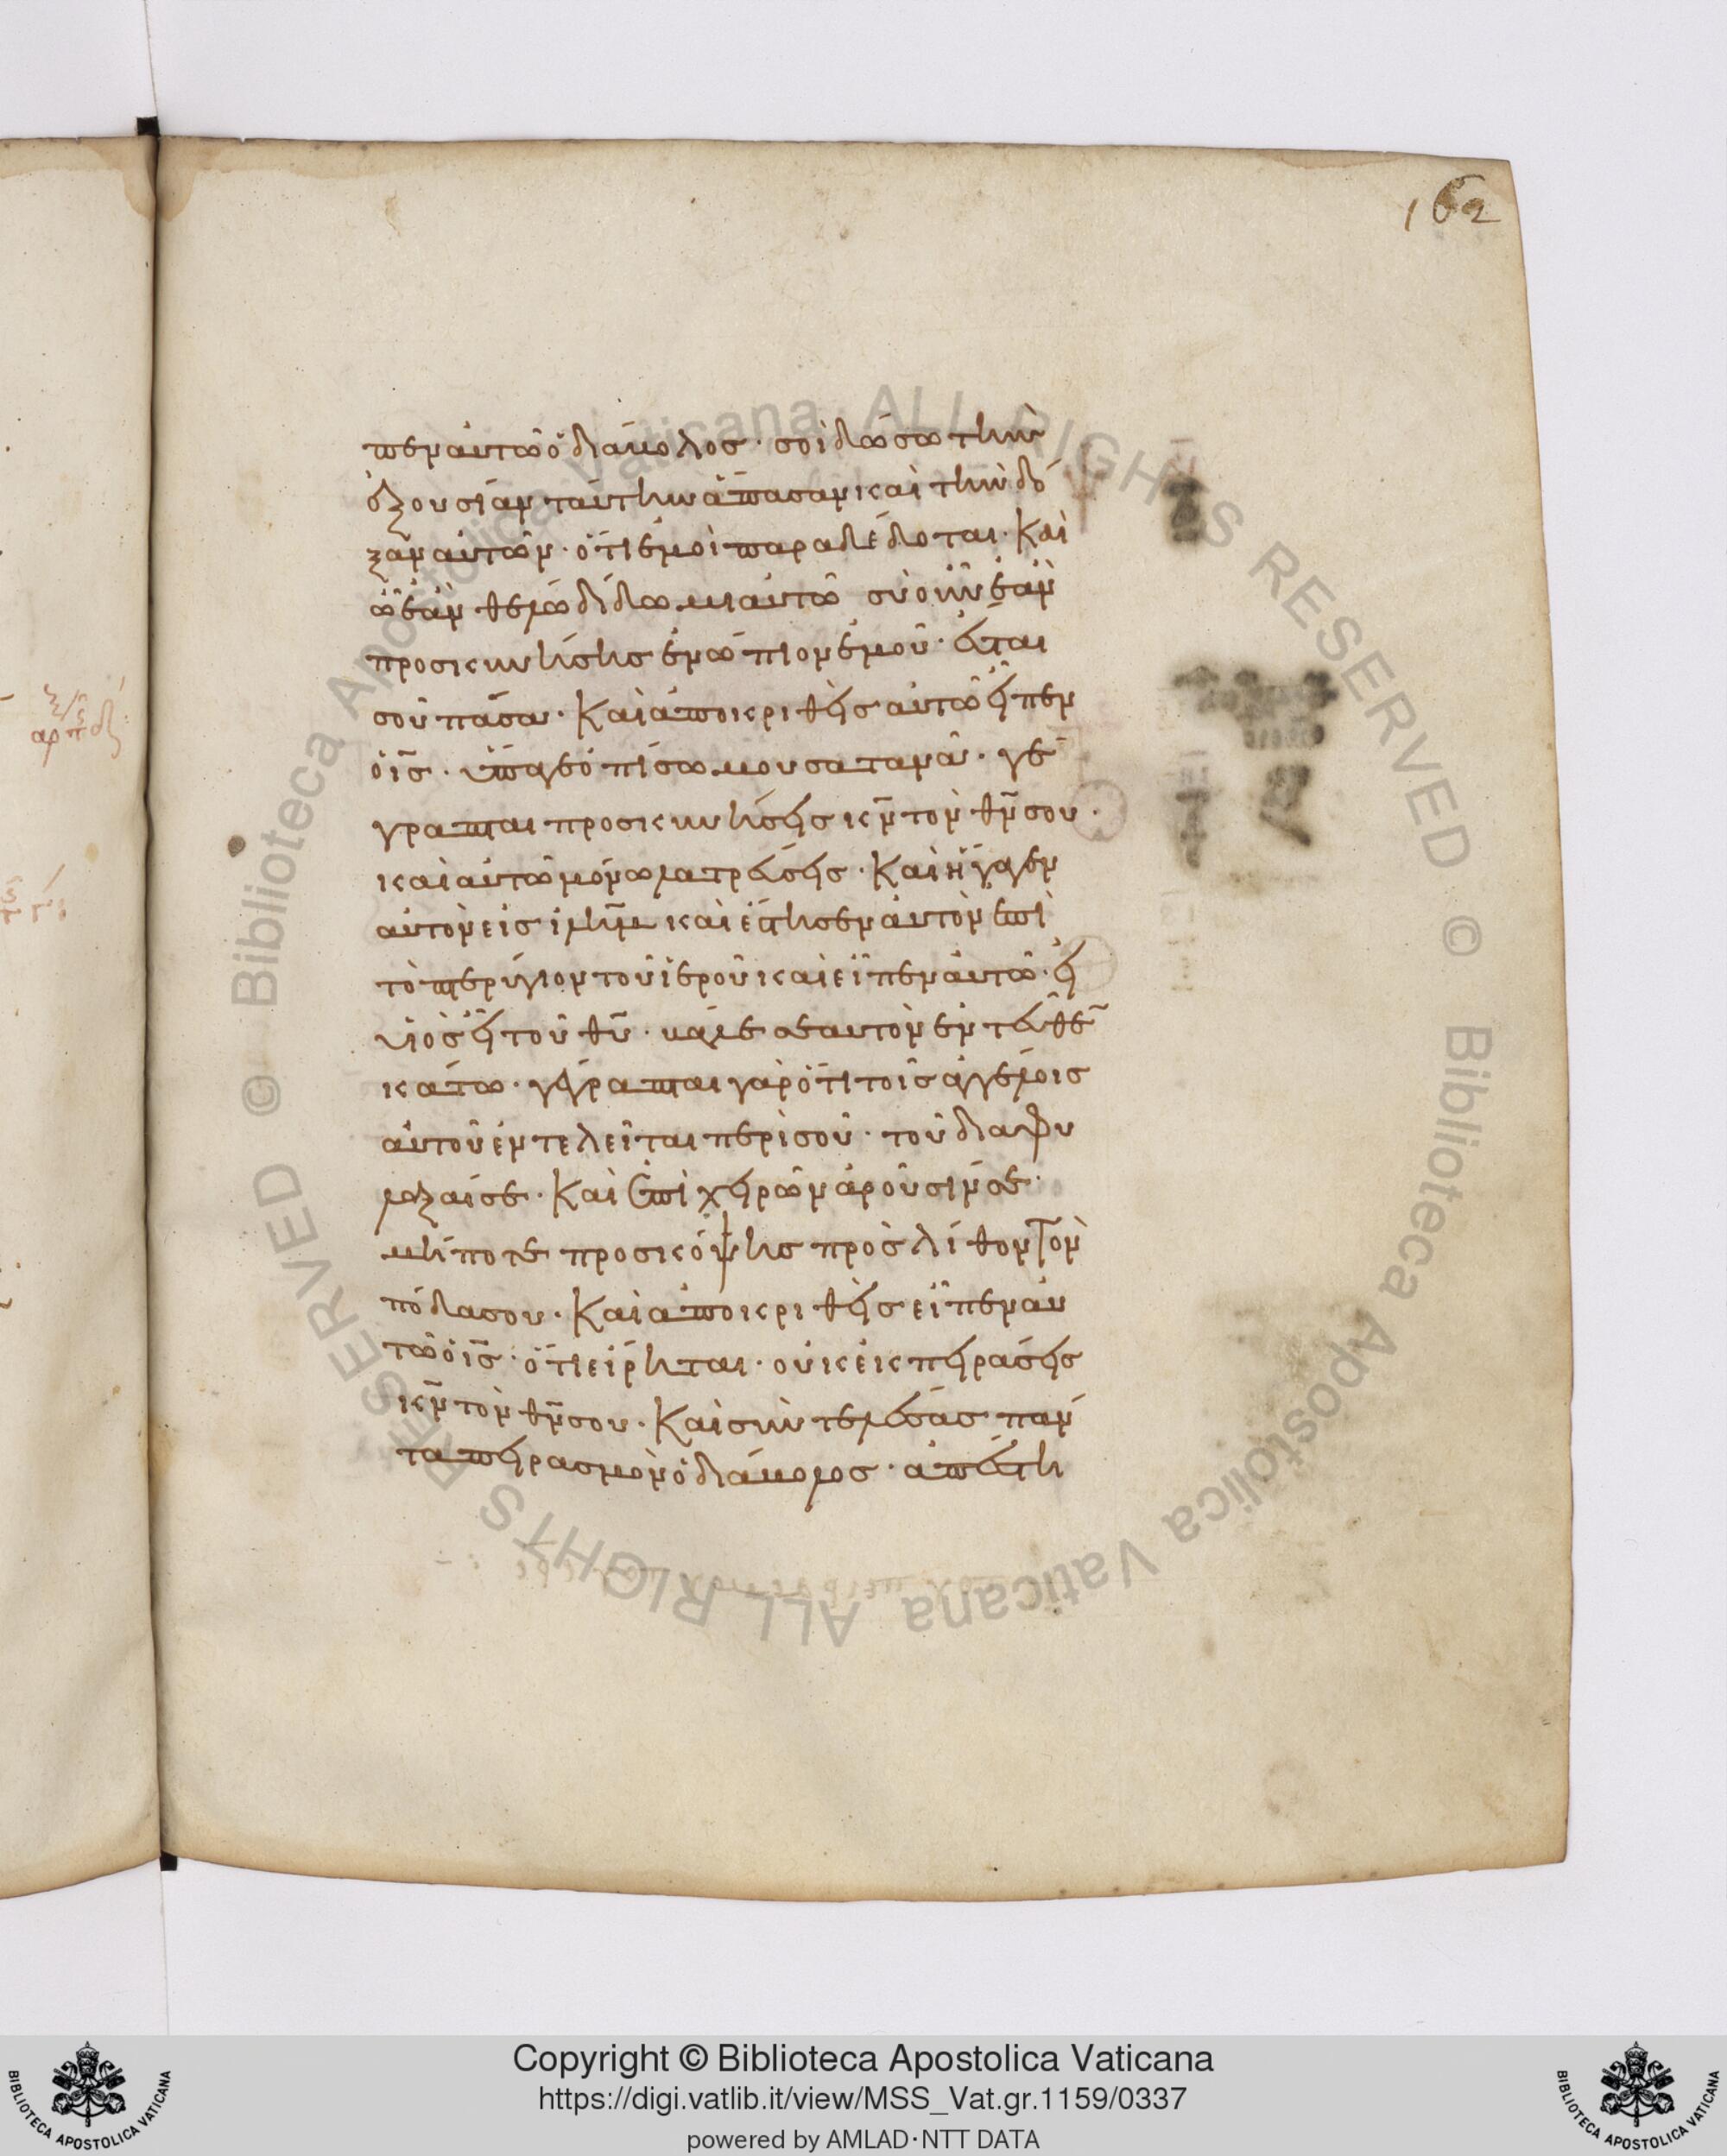 162
περ αυτῶ ὁ διάβολος· σοὶ δώσω τὴν
ἐξουσίαν ταύτην ἅπασαν καὶ τὴν δό
ξαν αὐτῶν· ὅτι ἐμοὶ παραδέδοται· Καὶ
ᾧ ἐὰν θέλω δίδωμι αὐτῶ σὺ οὖν ἐὰν
προσκυνήσης ἐνώπιον ἐμοῦ· ἔσται
σοῦ πᾶσα· Καὶ ἀποκριθεὶς αὐτῶ εἶπεν
ὁ ις̅· ὕπαγε ὀπίσω μου σατανᾶ· γέ
γραπται προσκυνήσεις κν̅ τὸν θν̅ σου·
καὶ αὐτῶ μόνω λατρεύσεις· Καὶ ἤγαγεν
αὐτὸν εἰς ιλημ̅ καὶ ἔστησεν αὐτὸν ἐπὶ
τὸ πτερύγιον τοῦ ἱεροῦ καὶ εἶπεν αὐτῶ· εἰ
υἱὸς εἶ τοῦ θυ̅· βάλε σεαυτὸν ἐντεῦθε̅
κάτω· γέγραπται γὰρ ὅτι τοῖς ἀγγέλοις
αὐτοῦ ἐντελεῖται περὶ σοῦ· τοῦ διαφυ
λάξαι σε· Καὶ ἐπὶ χειρῶν ἀροῦσίν σε·
μήποτε προσκόψης πρὸς λίθον τὸν
πόδα σου· Καὶ ἀποκριθεὶς εἶπεν αὐ
τῶ ὁ ις̅· ὅτι εἴρηται· οὐκ ἐκπειράσεις
κν̅ τὸν θν̅ σου· Καὶ συντελέσας πάν
τα πειρασμὸν ὁ διάβολος· ἀπέστη
Copyright © Biblioteca Apostolica Vaticana
https://digi.vatlib.it/view/MSS_Vat.gr.1159/0337
powered by AMLAD·NTT DATA
BIBLIOTECA APOSTOLICA VATICANA
BIBLIOTECA APOSTOLICA VATICANA
© Biblioteca Apostolica Vaticana ALL RIGHTS RESERVED © Biblioteca Apostolica Vaticana ALL RIGHTS RESERVED